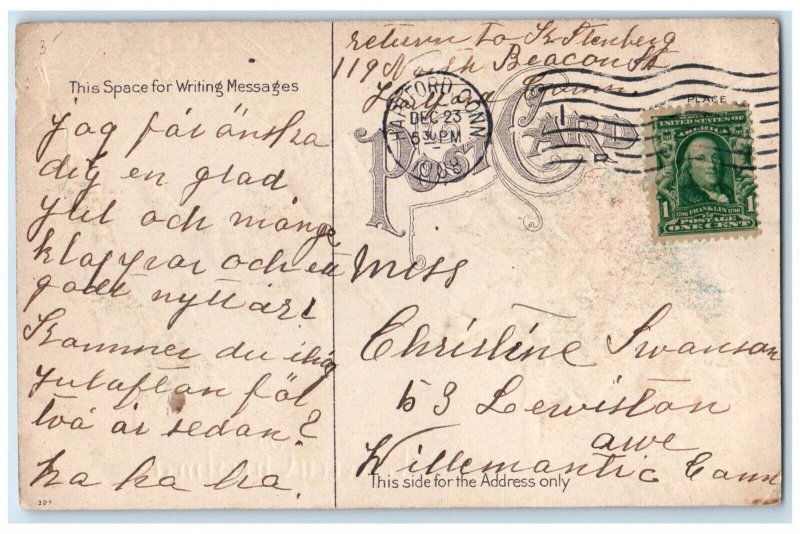 3
return to K Stenberg
119 North Beacon St
Hartford Conn.
This Space for Writing Messages
PLACE
HARTFORD, CONN
DEC 23
5 30 PM
1908
POST CARD
SERIES 1902
UNITED STATES OF AMERICA
1 FRANKLIN 1
POSTAGE
ONE CENT
jag får önska
dig en glad
jul och många
klappar och ett
godt nytt år!
Kommer du ihåg
julaftan för
två år sedan?
ha ha ha.
Miss
Christine Swanson
53 Lewiston
awe
Willemantic Conn
This side for the Address only
327